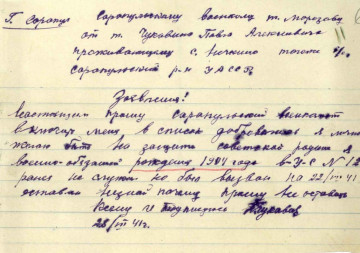 Г. Сарапул Сарапульскому военкому т. Морозову
от т. Чукавина Павла Алексеевича
проживающему с. Нечкино
Сарапульский р-н УАССР
Заявления!
Настоящим прошу Сарапульский
включить меня, в список добровольцев я лично
желаю быть на защите советской родины я
военно-обязаный рождения 1904 года В-У-С N 12
ранее не служил но был вызван на 22/VII 41
оставлен прошу не оставить
28/VII 41г.